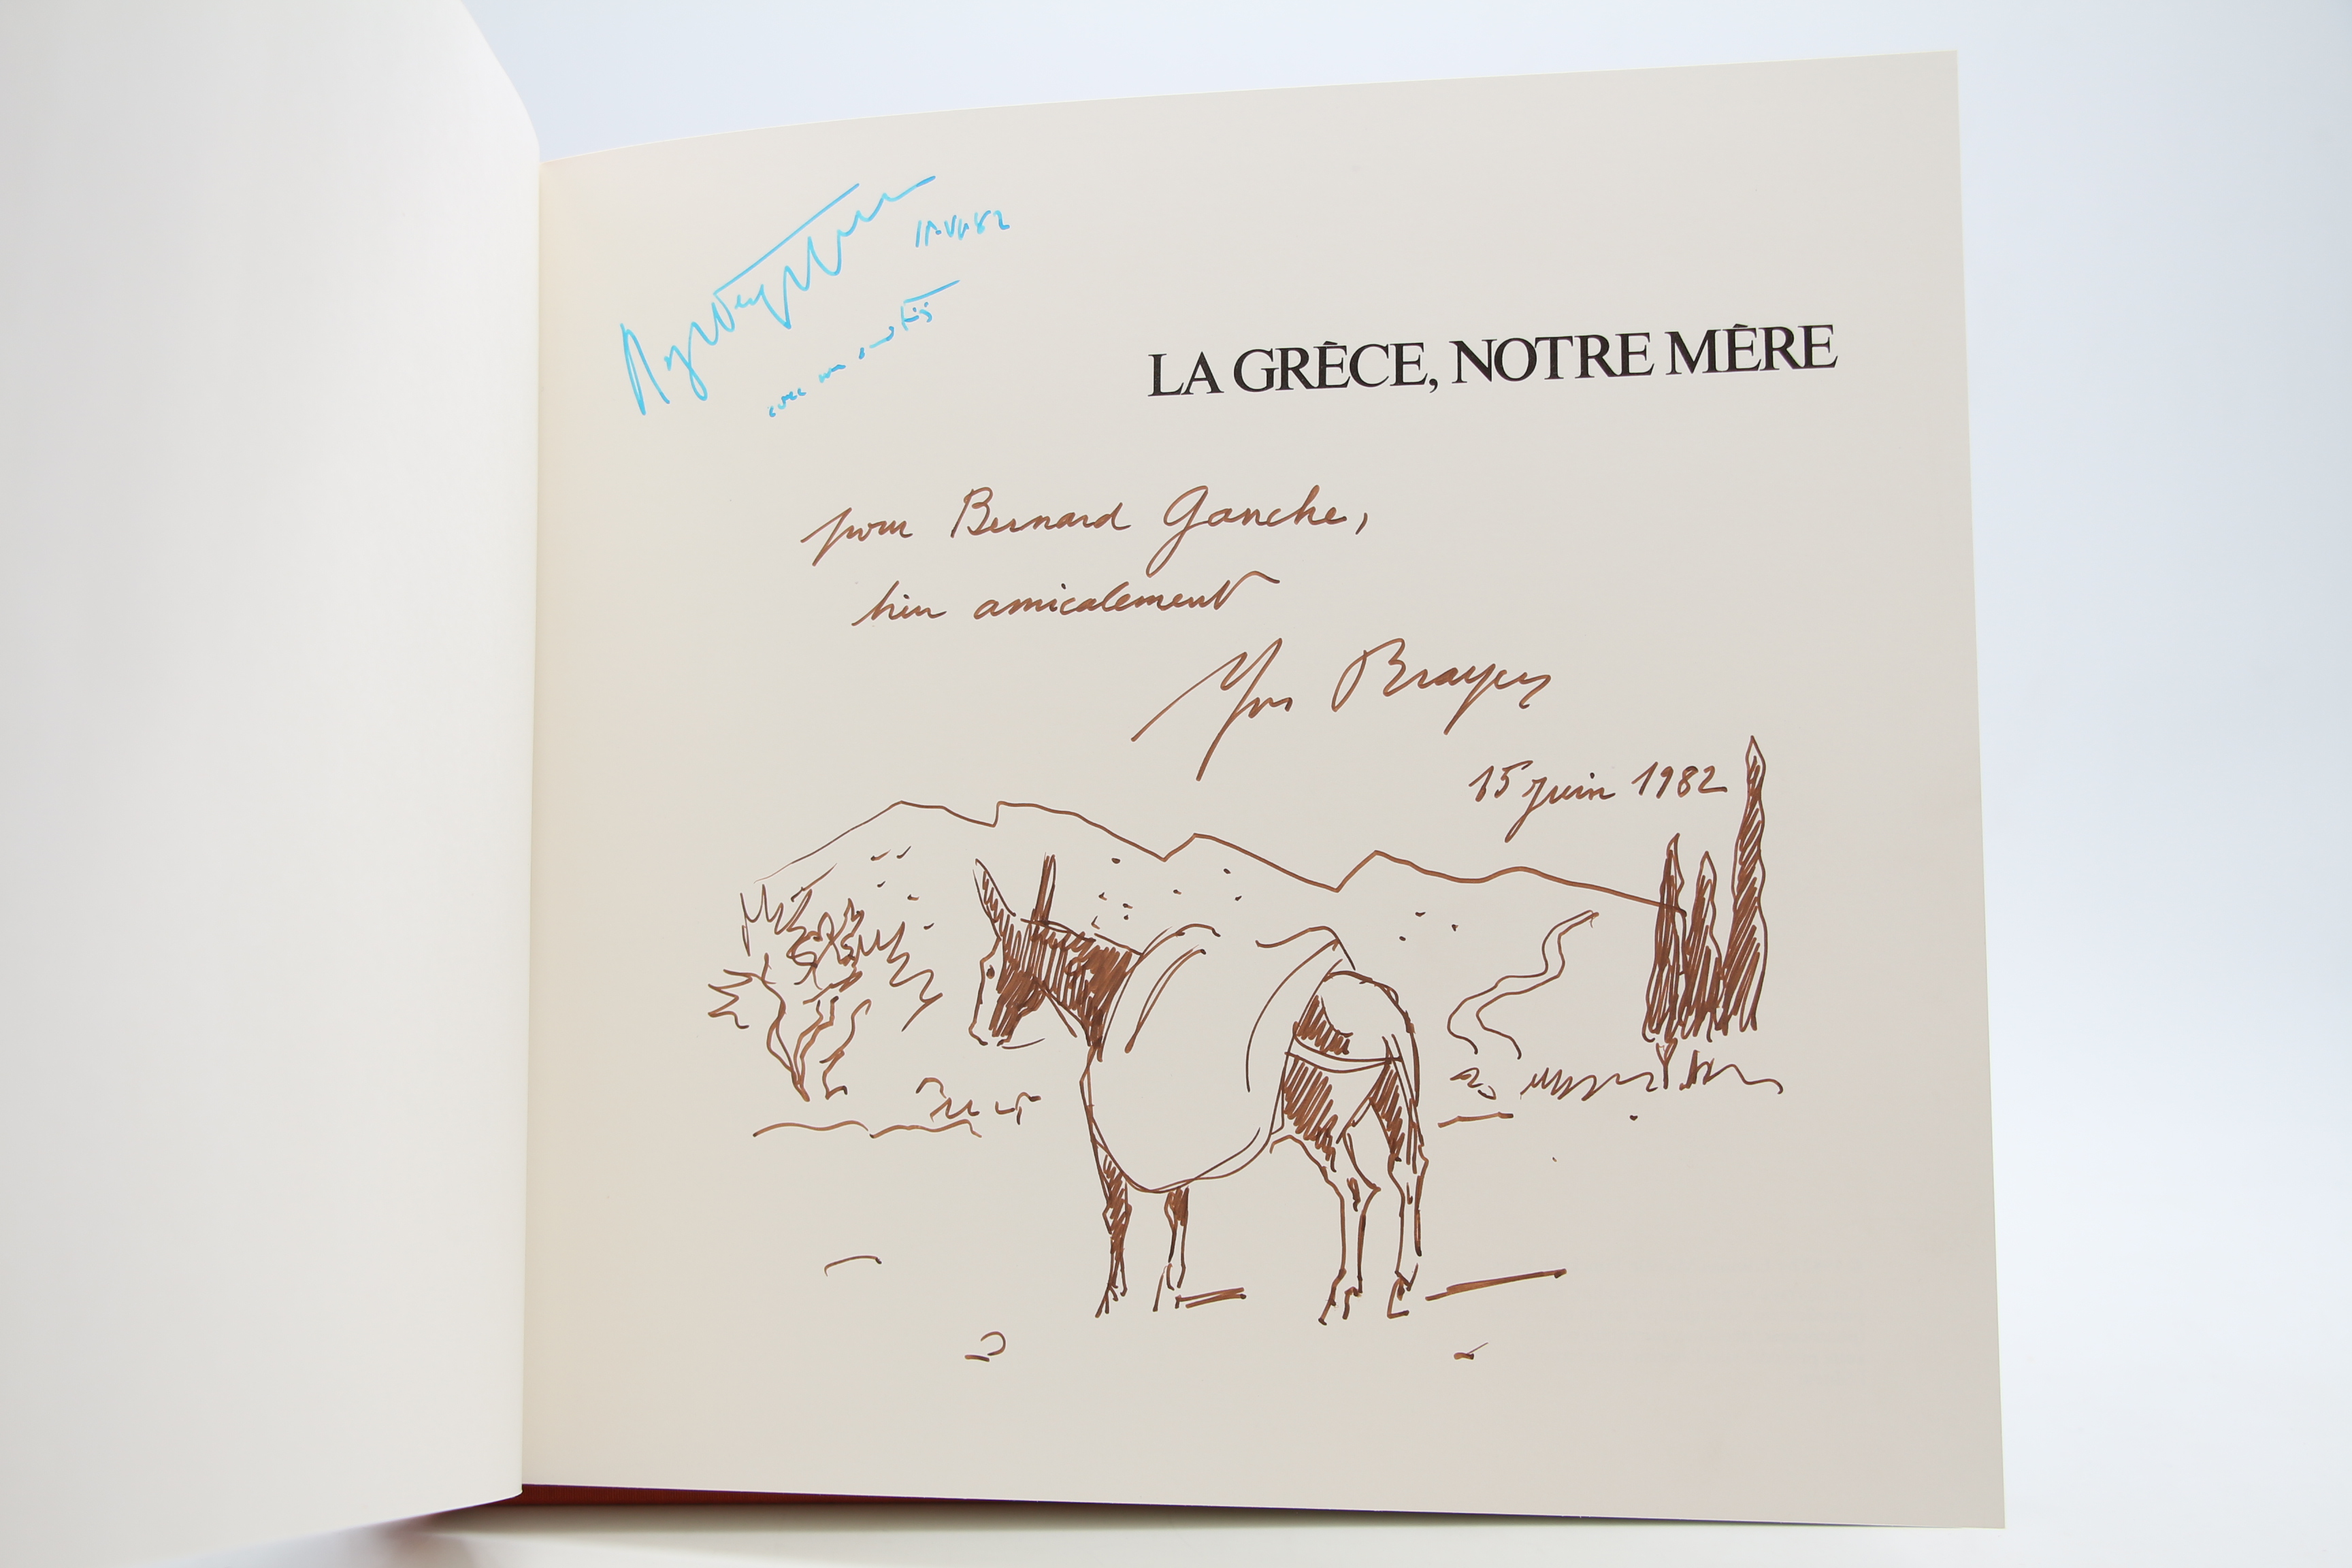 82
avec
LA GRÈCE, NOTRE MÈRE
pour Bernard Ganche,
bien amicalement
Yves Brayer
15 juin 1982